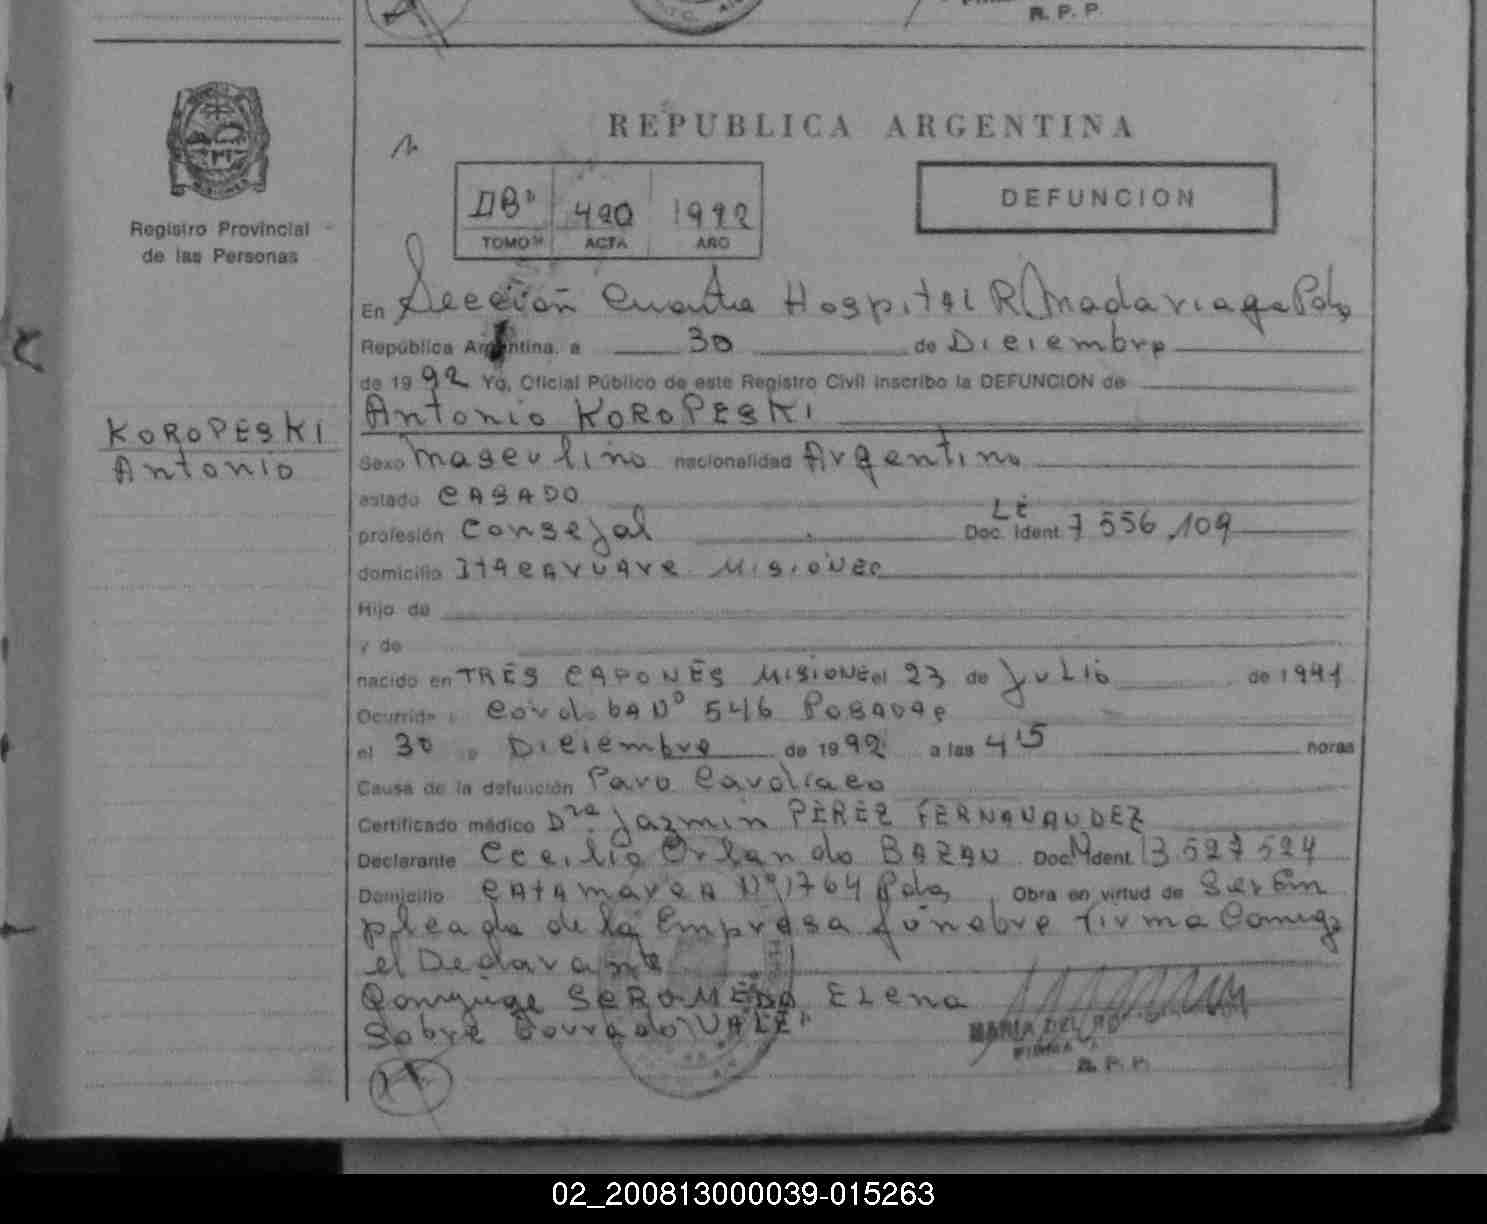 R. P. P.
REPUBLICA ARGENTINA
DEFUNCION
1992
TOMO ACTA AÑO
Registro Provincial
de las Personas
En Sección Cuarta Hospital R Madariaga Pdas
República Argentina, a 30 de Diciembre
de 1992 Yo, Oficial Público de este Registro Civil inscribo la DEFUNCION de
KOROPESKI
Antonio
Antonio KOROPESKI
Sexo Masculino nacionalidad Argentino
estado CASADO
profesión Consejal Doc. Ident. LE 7 556,109
domicilio Itacaruare Misiones
Hijo de
y de
nacido en TRES CAPONES MISIONES el 23 de Julio de 1941
Ocurrida Cordoba Nº 546 Posadas
el 30 Diciembre de 1992 a las 4 15 horas
Causa de la defunción Paro Cardiaco
Certificado médico Dra Jazmin PEREZ FERNANDEZ
Declarante Cecilio Orlando BAZAN Doc. Ident. 13.527 524
Domicilio Catamarca Nº 1764 Pdas Obra en virtud de Ser Em
pleado de la Empresa fúnebre firma Comigo
el Declarante
Conyuge SEROMEDO Elena
Sobre borrado "VALE"
MARIA DEL
FIRMA
R. P. P.
02_200813000039-015263